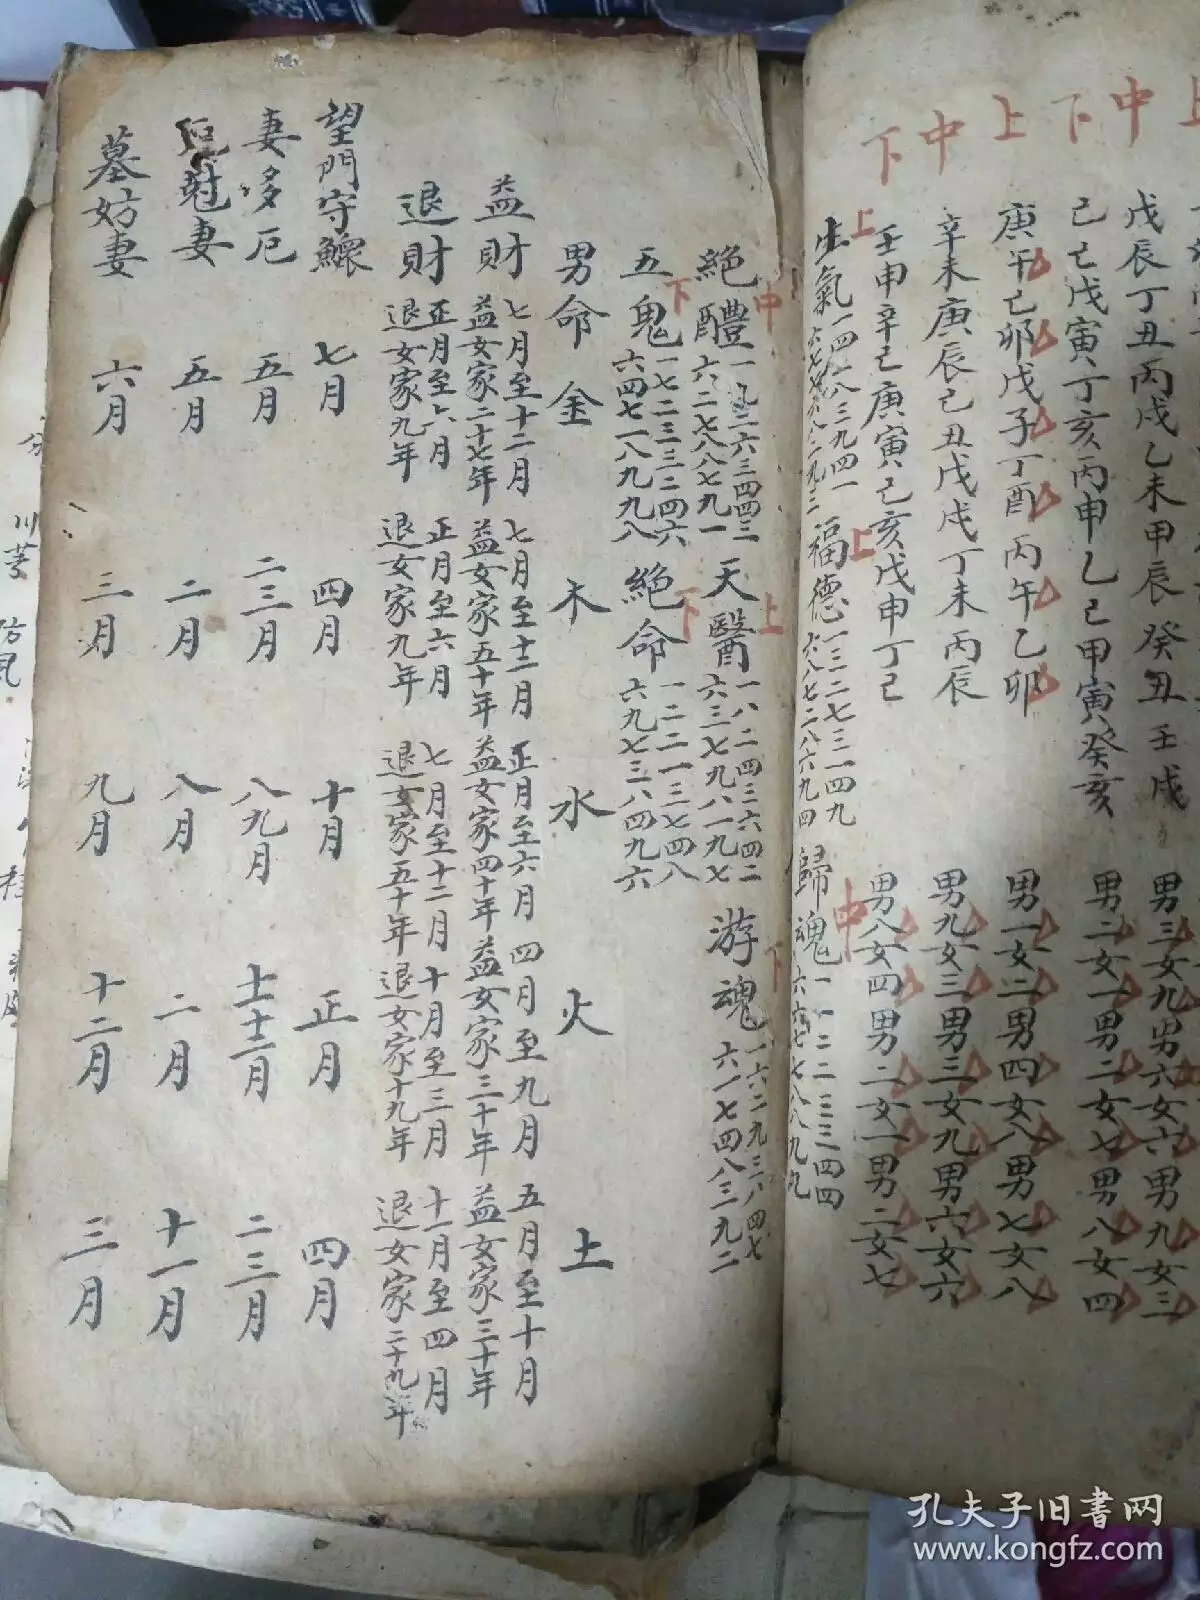 上 中 下 上 中 下
戊辰丁丑丙戌乙未甲辰癸丑壬戌 男三女九男六女六男九女三
己巳戊寅丁亥丙申乙巳甲寅癸亥 男二女一男二女七男八女四
庚午己卯戊子丁酉丙午乙卯 男一女二男四女八男七女八
辛未庚辰己丑戊戌丁未丙辰 男九女三男三女九男六女六
壬申辛巳庚寅己亥戊申丁巳 男八女四男二女一男二女七
上 生氣 一四二八三九四一
六七七六八二九三
上 福德 一三二七三一四九
六八七二八六九四
中 歸魂 一一二二三三四四
六六七七八八九九
中 絕體 一九二六三四四三
六二七八八七九一
上 天醫 一八二四三六四二
六三七九八一九七
下 游魂 一六二九三八四七
六一七四八三九二
下 五鬼 一七二三三二四六
六四七一八九九八
下 絕命 一二二一三七四八
六九七三八四九六
男命 金 木 水 火 土
益財 七月至十二月 益女家二十七年 七月至十二月 益女家五十年 正月至六月 益女家四十年 四月至九月 益女家三十年 五月至十月 益女家三十年
退財 正月至六月 退女家九年 正月至六月 退女家九年 七月至十二月 退女家五十年 十月至三月 退女家十九年 十一月至四月 退女家二十九年
望門守鰥 七月 四月 十月 正月 四月
妻多厄 五月 二三月 八九月 十一十二月 二三月
妻 五月 二月 八月 二月 十一月
墓妨妻 六月 三月 九月 十二月 三月
川芎 防風
孔夫子旧書网
www.kongfz.com